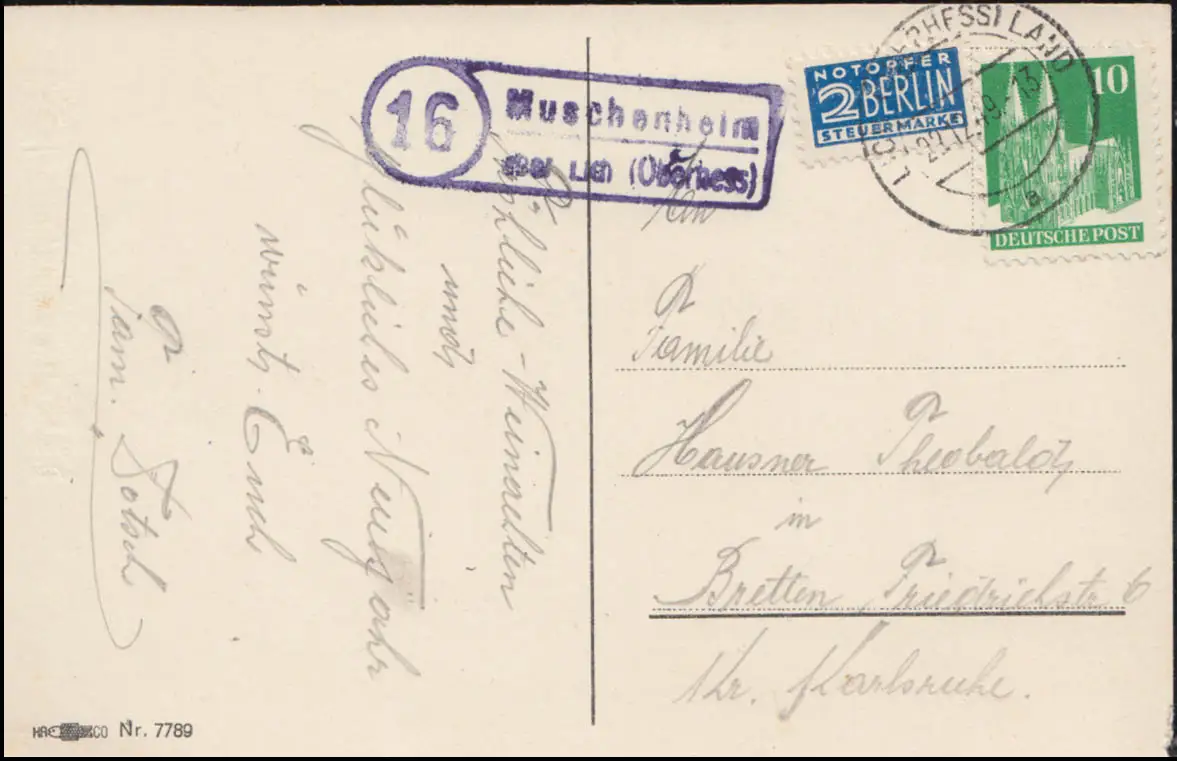 16
Muschenheim
über Lich (Oberhess)
NOTOPFER
2 BERLIN
STEUERMARKE
10
DEUTSCHE POST
LICH OBERHESS LAND
a
Fröhliche - Weinachten
und
glükliches Neujahr
wünst Euch
Fam. Dotsch
An
Familie
Hausner Theobald
in
Bretten Friedrichstr 6
Kr. Karlsruhe.
Nr. 7789